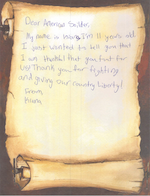 Dear American Soldier,
My name is I'm 11 years old
I just wanted to tell you that
I am thankful that you fight for
us! Thank you for fighting
and giving our country liberty!
From,